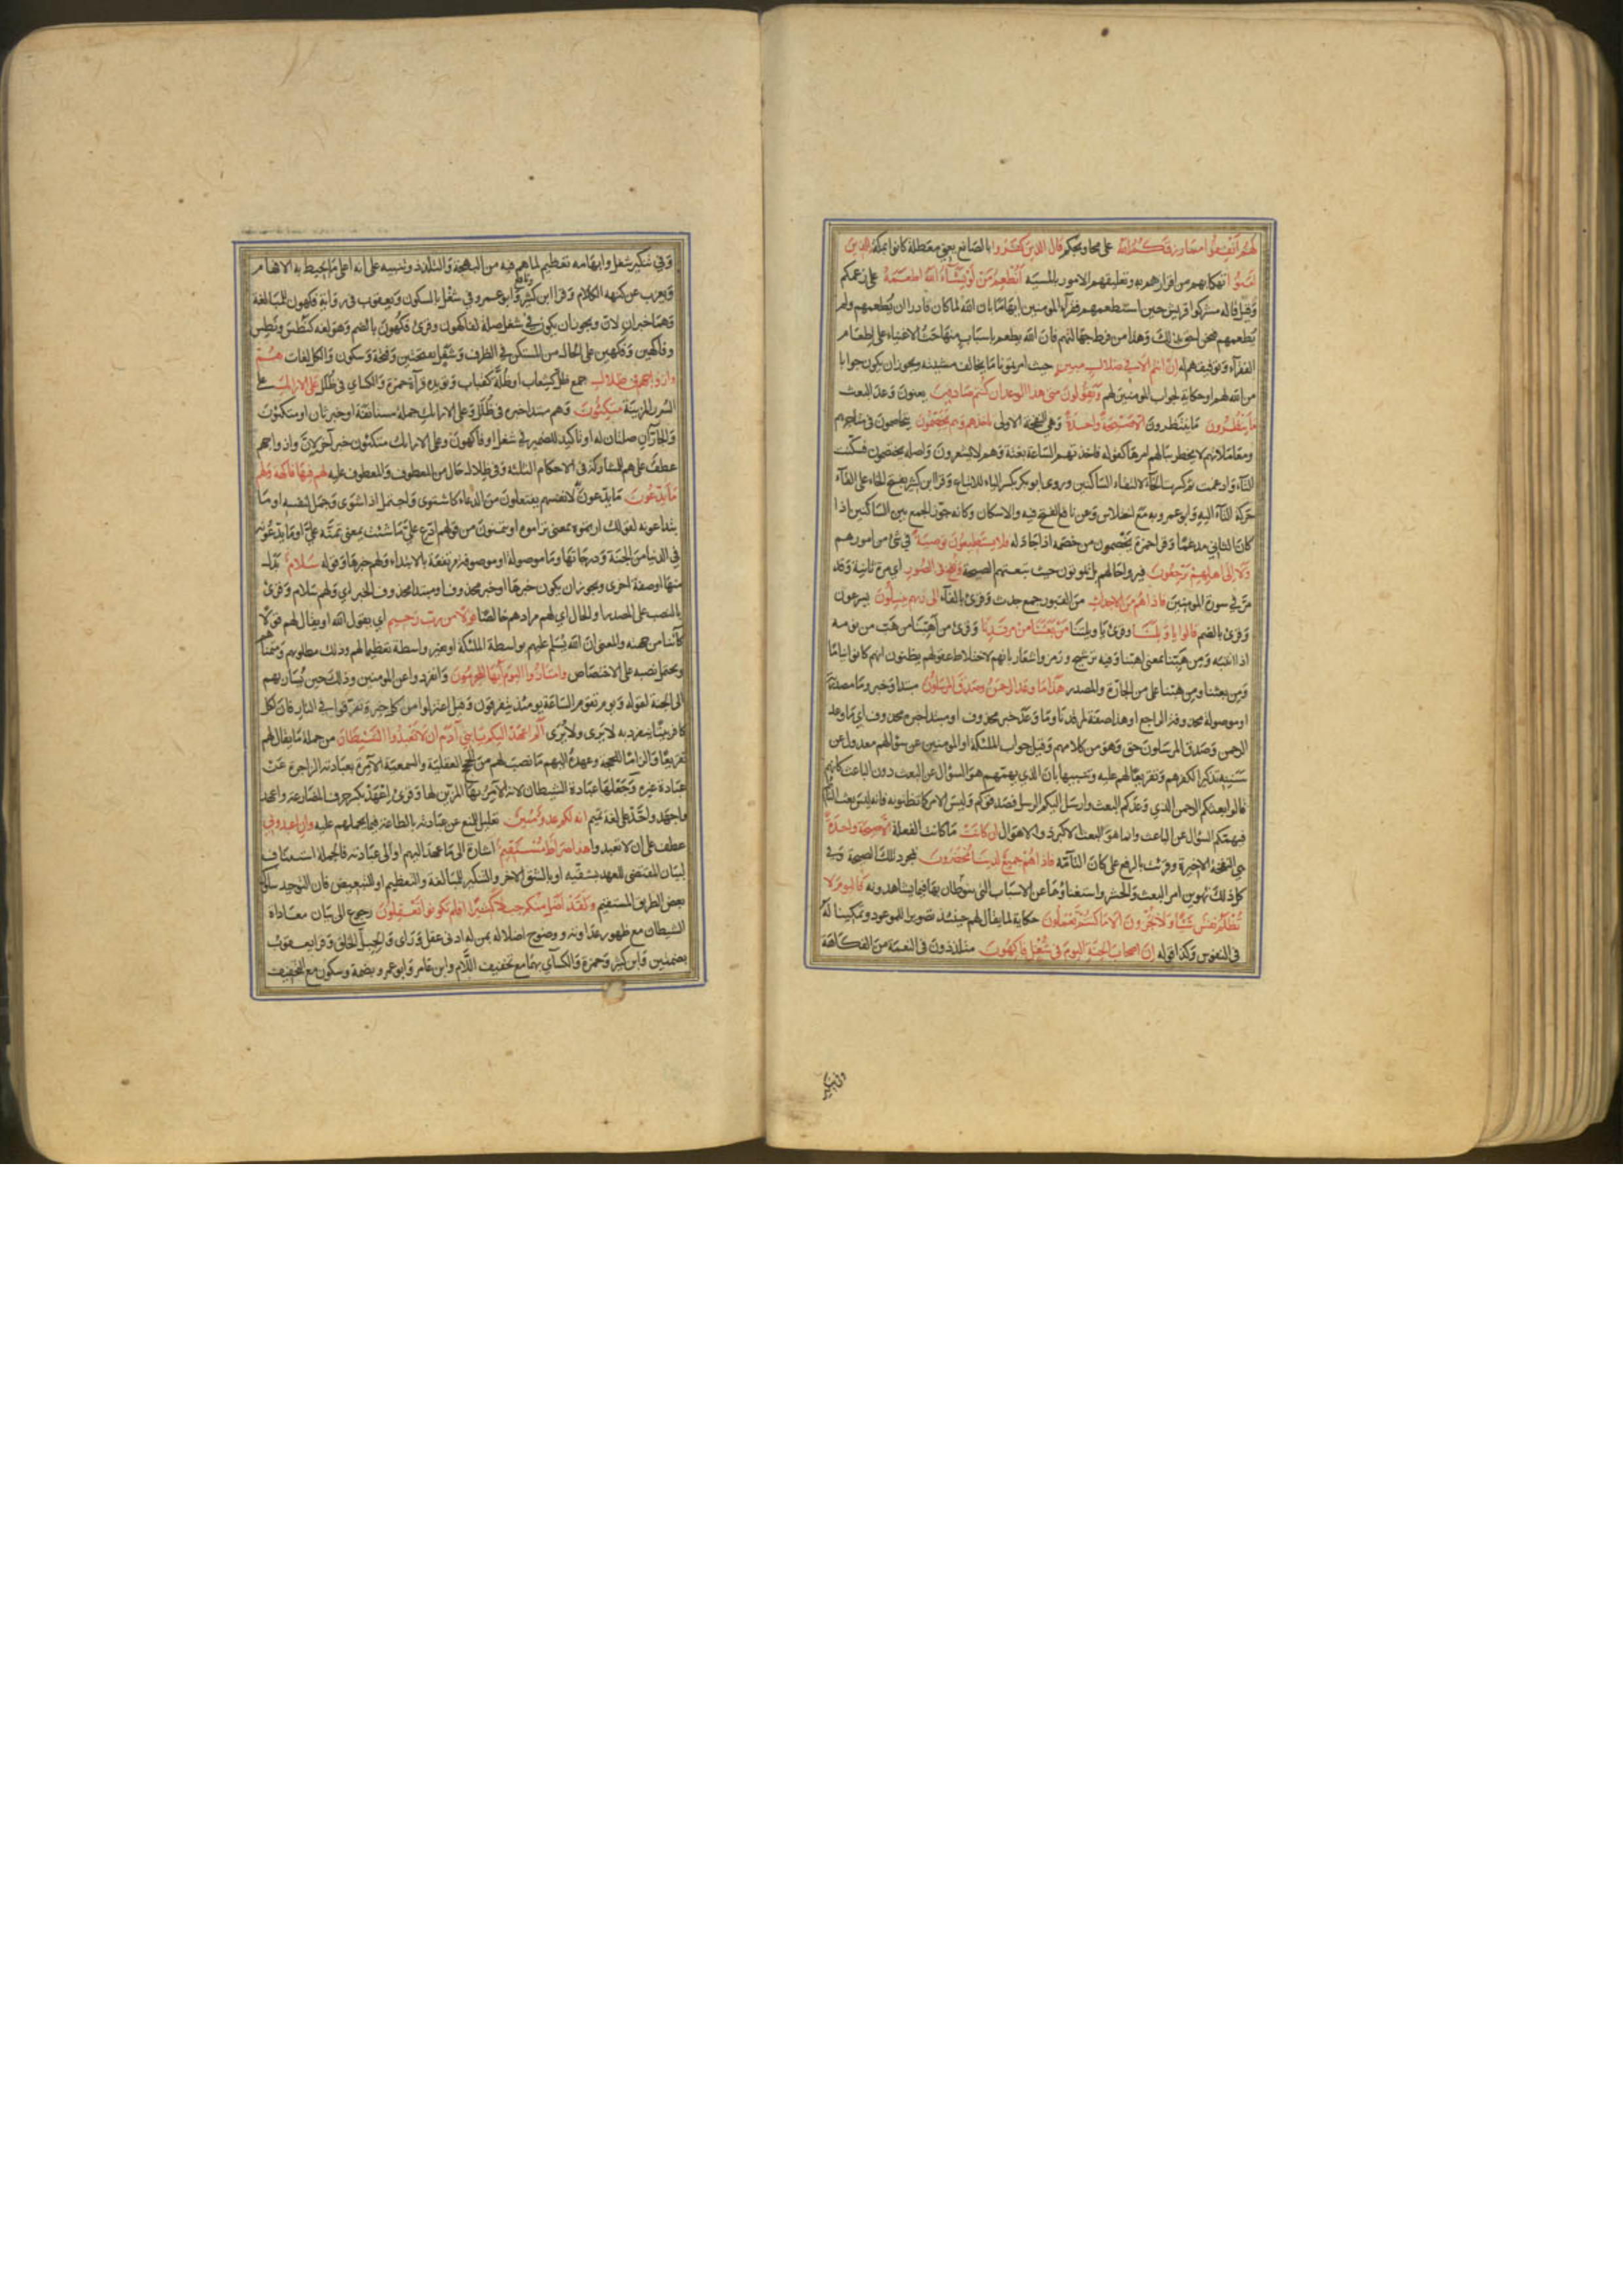 لهم انفقوا مما رزقكم الله على محاويجكم قال الذين كفروا بالصانع يعني معطلة كانوا بمكة للذين
امنوا تهكما بهم من اقرارهم به وتعليقهم الامور بمشيته انطعم من لو يشاء الله اطعمه على زعمكم
وقيل قاله مشركوا قريش حين استطعمهم فقرآء المومنين ايهاما بان الله لما كان قادرا ان يطعمهم ولم
يطعمهم فنحن احق بذلك وهذا من فرط جهالتهم فان الله يطعم باسباب منها حث الاغنياء على اطعام
الفقرآء وتوفيقهم له ان انتم الا في ضلال مبين حيث امرتمونا ما يخالف مشيئته ويجوز ان يكون جوابا
من الله لهم او حكاية لجواب المومنين لهم ويقولون متى هذا الوعد ان كنتم صادقين يعنون وعد البعث
ما ينظرون ما ينتظرون الا صيحة واحدة وهي النفخة الاولى تاخذهم وهم يخصمون يتخاصمون في متاجرهم
ومعاملاتهم لا يخطر ببالهم امرها كقوله فاخذتهم الساعة بغتة وهم لا يشعرون واصله يختصمون فسكنت
التآء وادغمت ثم كسرت الخآء لالتقاء الساكنين وروى ابو بكر بكسر الياء للاتباع وقرا ابن كثير بفتح الخاء على القآء
حركة التآء اليه وابو عمرو به مع اختلاس وعن نافع الفتح فيه والاسكان وكانه جوز الجمع بين الساكنين اذا
كان الثاني مدغما وقرا حمزة يخصمون من خصمه اذا جادله فلا يستطيعون توصية في شئ من امورهم
ولا الى اهلهم يرجعون فيروا حالهم بل يموتون حيث تبغتهم الصيحة ونفخ في الصور اي مرة ثانية وقد
مر في سورة المومنين فاذا هم من الاجداث من القبور جمع جدث وقرئ بالفآء الى ربهم ينسلون يسرعون
وقرئ بالضم قالوا يا ويلنا وقرئ يا ويلتنا من بعثنا من مرقدنا وقرئ من اهبنا من هب من نومه
اذا انتبه ومن هبنا بمعنى اهبنا وفيه ترشيح ورمز واشعار بانهم لاختلاط عقولهم يظنون انهم كانوا نياما
ومن بعثنا ومن هبنا على من الجارة والمصدر هذا ما وعد الرحمن وصدق المرسلون مبتدا وخبر وما مصدرية
او موصولة محذوفة الراجع او هذا صفة لمرقدنا وما وعد خبر محذوف او مبتدا خبره محذوف اي ما وعد
الرحمن وصدق المرسلون حق وهو من كلامهم وقيل جواب الملئكة او المومنين عن سؤالهم معدول عن
سننه تذكيرا لكفرهم وتقريعا لهم عليه وتنبيها بان الذي يهمهم هو السؤال عن البعث دون الباعث كانهم
قالوا بعثكم الرحمن الذي وعدكم البعث وارسل اليكم الرسل فصدقوكم وليس الامر كما تظنونه فانه ليس بعث النائم
فيهمكم السؤال عن الباعث وانما هو البعث الاكبر ذو الاهوال ان كانت ما كانت الفعلة الا صيحة واحدة
هي النفخة الاخيرة وقرئت بالرفع على كان التآمة فاذا هم جميع لدينا محضرون بمجرد تلك الصيحة وفي
كل ذلك تهوين امر البعث والحشر واستغناؤهما عن الاسباب التي ينوطان بها فيما يشاهدونه فاليوم لا
تظلم نفس شيئا ولا تجزون الا ما كنتم تعملون حكاية لما يقال لهم حينئذ تصويرا للموعود وتمكينا له
في النفوس وكذا قوله ان اصحاب الجنة اليوم في شغل فاكهون متلذذون في النعمة من الفكاهة
وفي تنكير
وفي تنكير شغل وابهامه تعظيم لما هم فيه من البهجة والتلذذ وتنبيه على انه اعلى ما يحيط به الافهام
ويعرب عن كنهه الكلام وقرا ابن كثير ونافع وابو عمرو في شغل بالسكون ويعقوب في رواية فكهون للمبالغة
وهما خبران لان ويجوز ان يكون في شغل صلة لفاكهون وقرئ فكهون بالضم وهو لغة كنطس ونطس
وفاكهين وفكهين على الحال من المستكن في الظرف وشغل بفتحتين وفتحة وسكون والكل لغات هم
وازواجهم في ظلال جمع ظل كشعاب او ظلة كقباب ويؤيده قرآءة حمزة والكسائي في ظلل على الارائك على
السرر المزينة متكئون وهم مبتدا خبره في ظلل وعلى الارائك جملة مستانفة او خبر ثان او متكئون
والجاران صلتان له او تاكيد للضمير في شغل او فاكهون وعلى الارائك متكئون خبر آخر لان وازواجهم
عطف على هم للمشاركة في الاحكام الثلثة وفي ظلال حال من المعطوف والمعطوف عليه لهم فيها فاكهة ولهم
ما يدعون ما يدعون لانفسهم يفتعلون من الدعاء كاشتوى واجتمل اذا اشوى وجمل لنفسه او ما
يتداعونه كقولك ارتموه بمعنى تراموه او يتمنون من قولهم ادع علي ما شئت بمعنى تمنه علي او ما يدعونه
في الدنيا من الجنة ودرجاتها وما موصولة او موصوفة مرتفعة بالابتداء ولهم خبرها وقوله سلام بدل
منها او صفة اخرى ويجوز ان يكون خبرها او خبر محذوف او مبتدا محذوف الخبر اي ولهم سلام وقرئ
بالنصب على المصدر او الحال اي لهم مرادهم خالصا قولا من رب رحيم اي يقول الله او يقال لهم قولا
كائنا من جهته والمعنى ان الله يسلم عليهم بواسطة الملئكة او بغير واسطة تعظيما لهم وذلك مطلوبهم ومتمناهم
ويحتمل نصبه على الاختصاص وامتازوا اليوم ايها المجرمون وانفردوا عن المومنين وذلك حين يسار بهم
الى الجنة لقوله ويوم تقوم الساعة يومئذ يتفرقون وقيل اعتزلوا من كل خير او تفرقوا في النار فان لكل
كافر بيتا ينفرد به لا يرى ولا يرى الم اعهد اليكم يا بني آدم ان لا تعبدوا الشيطان من جملة ما يقال لهم
تقريعا والزاما للحجة وعهده اليهم ما نصب لهم من الحجج العقلية والسمعية الآمرة بعبادته الزاجرة عن
عبادة غيره وجعلها عبادة الشيطان لانه الآمر بها المزين لها وقرئ اعهد بكسر حرف المضارعة واعهد
واحهد واحد على لغة تميم انه لكم عدو مبين تعليل للمنع عن عبادته بالطاعة فيما يحملهم عليه وان اعبدوني
عطف على ان لا تعبدوا هذا صراط مستقيم اشارة الى ما عهد اليهم او الى عبادته فالجملة استيناف
لبيان المقتضى للعهد بشقيه او بالشق الآخر والتنكير للمبالغة والتعظيم او للتبعيض فان التوحيد سلوك
بعض الطريق المستقيم ولقد اضل منكم جبلا كثيرا افلم تكونوا تعقلون رجوع الى بيان معاداة
الشيطان مع ظهور عداوته ووضوح اضلاله لمن له ادنى عقل وراى والجبل الخلق وقرا يعقوب
بضمتين وابن كثير وحمزة والكسآي بهما مع تخفيف اللام وابن عامر وابو عمرو بضمة وسكون مع التخفيف